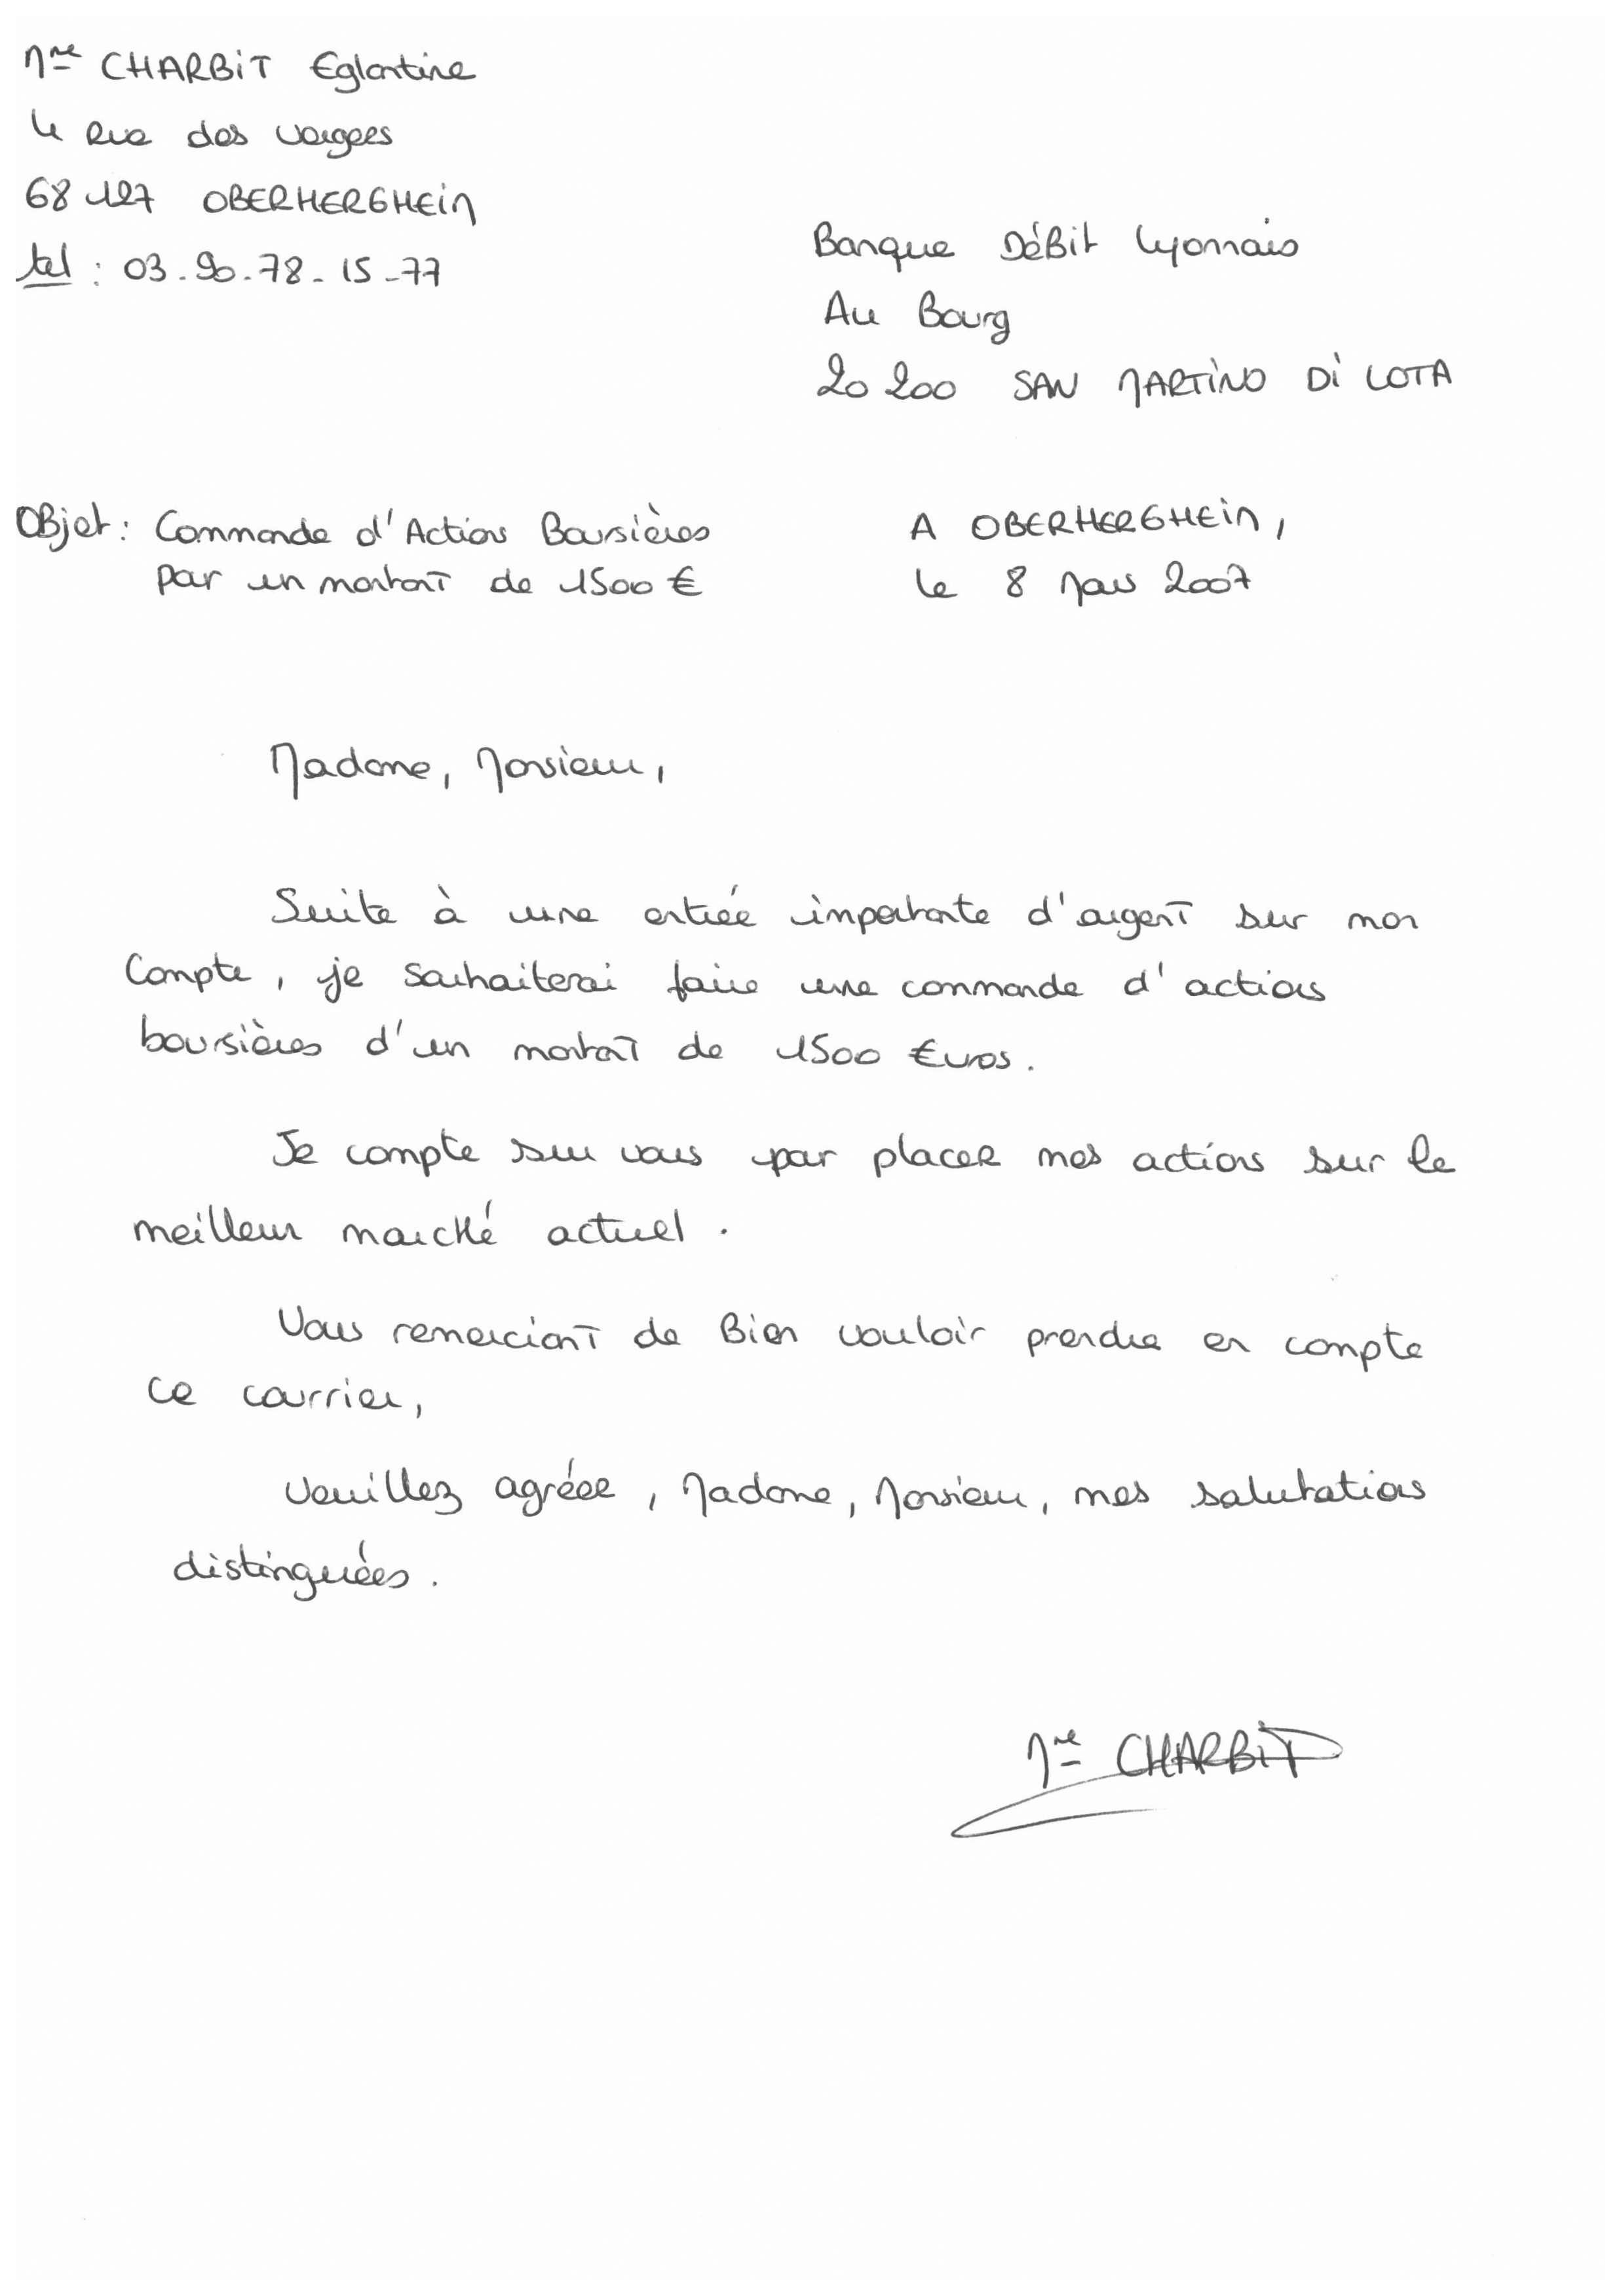 Mme CHARBIT Eglantine
4 Rue des vergers
68 127 OBERHERGHEIN
tel : 03-90-78-15-77
Banque DéBit Lyonnais
Au Bourg
20 200 SAN MARTINO Di LOTA
OBjet : Commande d'Actions Boursières
par un montant de 1500 €
A OBERHERGHEIN,
le 8 Mars 2007
Madame, Monsieur,
Suite à une entrée importante d'argent sur mon
Compte, je souhaiterai faire une commande d'actions
boursières d'un montant de 1500 €uros.
Je compte sur vous pour placer mes actions sur le
meilleur marché actuel.
Vous remerciant de Bien vouloir prendre en compte
ce courrier,
Veuillez agréer, Madame, Monsieur, mes salutations
distinguées.
Mme CHARBIT